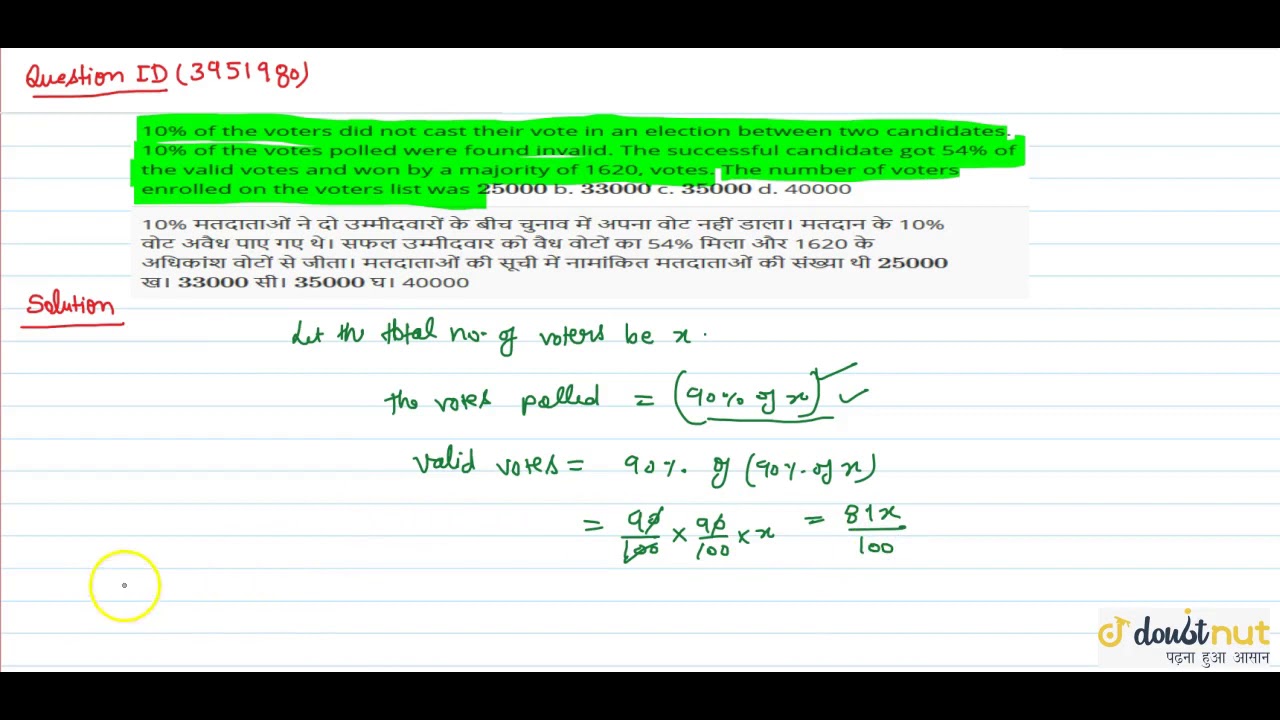 Question ID (3951980)
10% of the voters did not cast their vote in an election between two candidates.
10% of the votes polled were found invalid. The successful candidate got 54% of
the valid votes and won by a majority of 1620, votes. The number of voters
enrolled on the voters list was 25000 b. 33000 c. 35000 d. 40000
10% मतदाताओं ने दो उम्मीदवारों के बीच चुनाव में अपना वोट नहीं डाला। मतदान के 10%
वोट अवैध पाए गए थे। सफल उम्मीदवार को वैध वोटों का 54% मिला और 1620 के
अधिकांश वोटों से जीता। मतदाताओं की सूची में नामांकित मतदाताओं की संख्या थी 25000
ख। 33000 सी। 35000 घ। 40000
Solution
Let the total no. of voters be x.
the votes polled = (90% of x)
valid votes = 90% of (90% of x)
= 90/100 × 90/100 × x = 81x/100
doubtnut
पढ़ना हुआ आसान